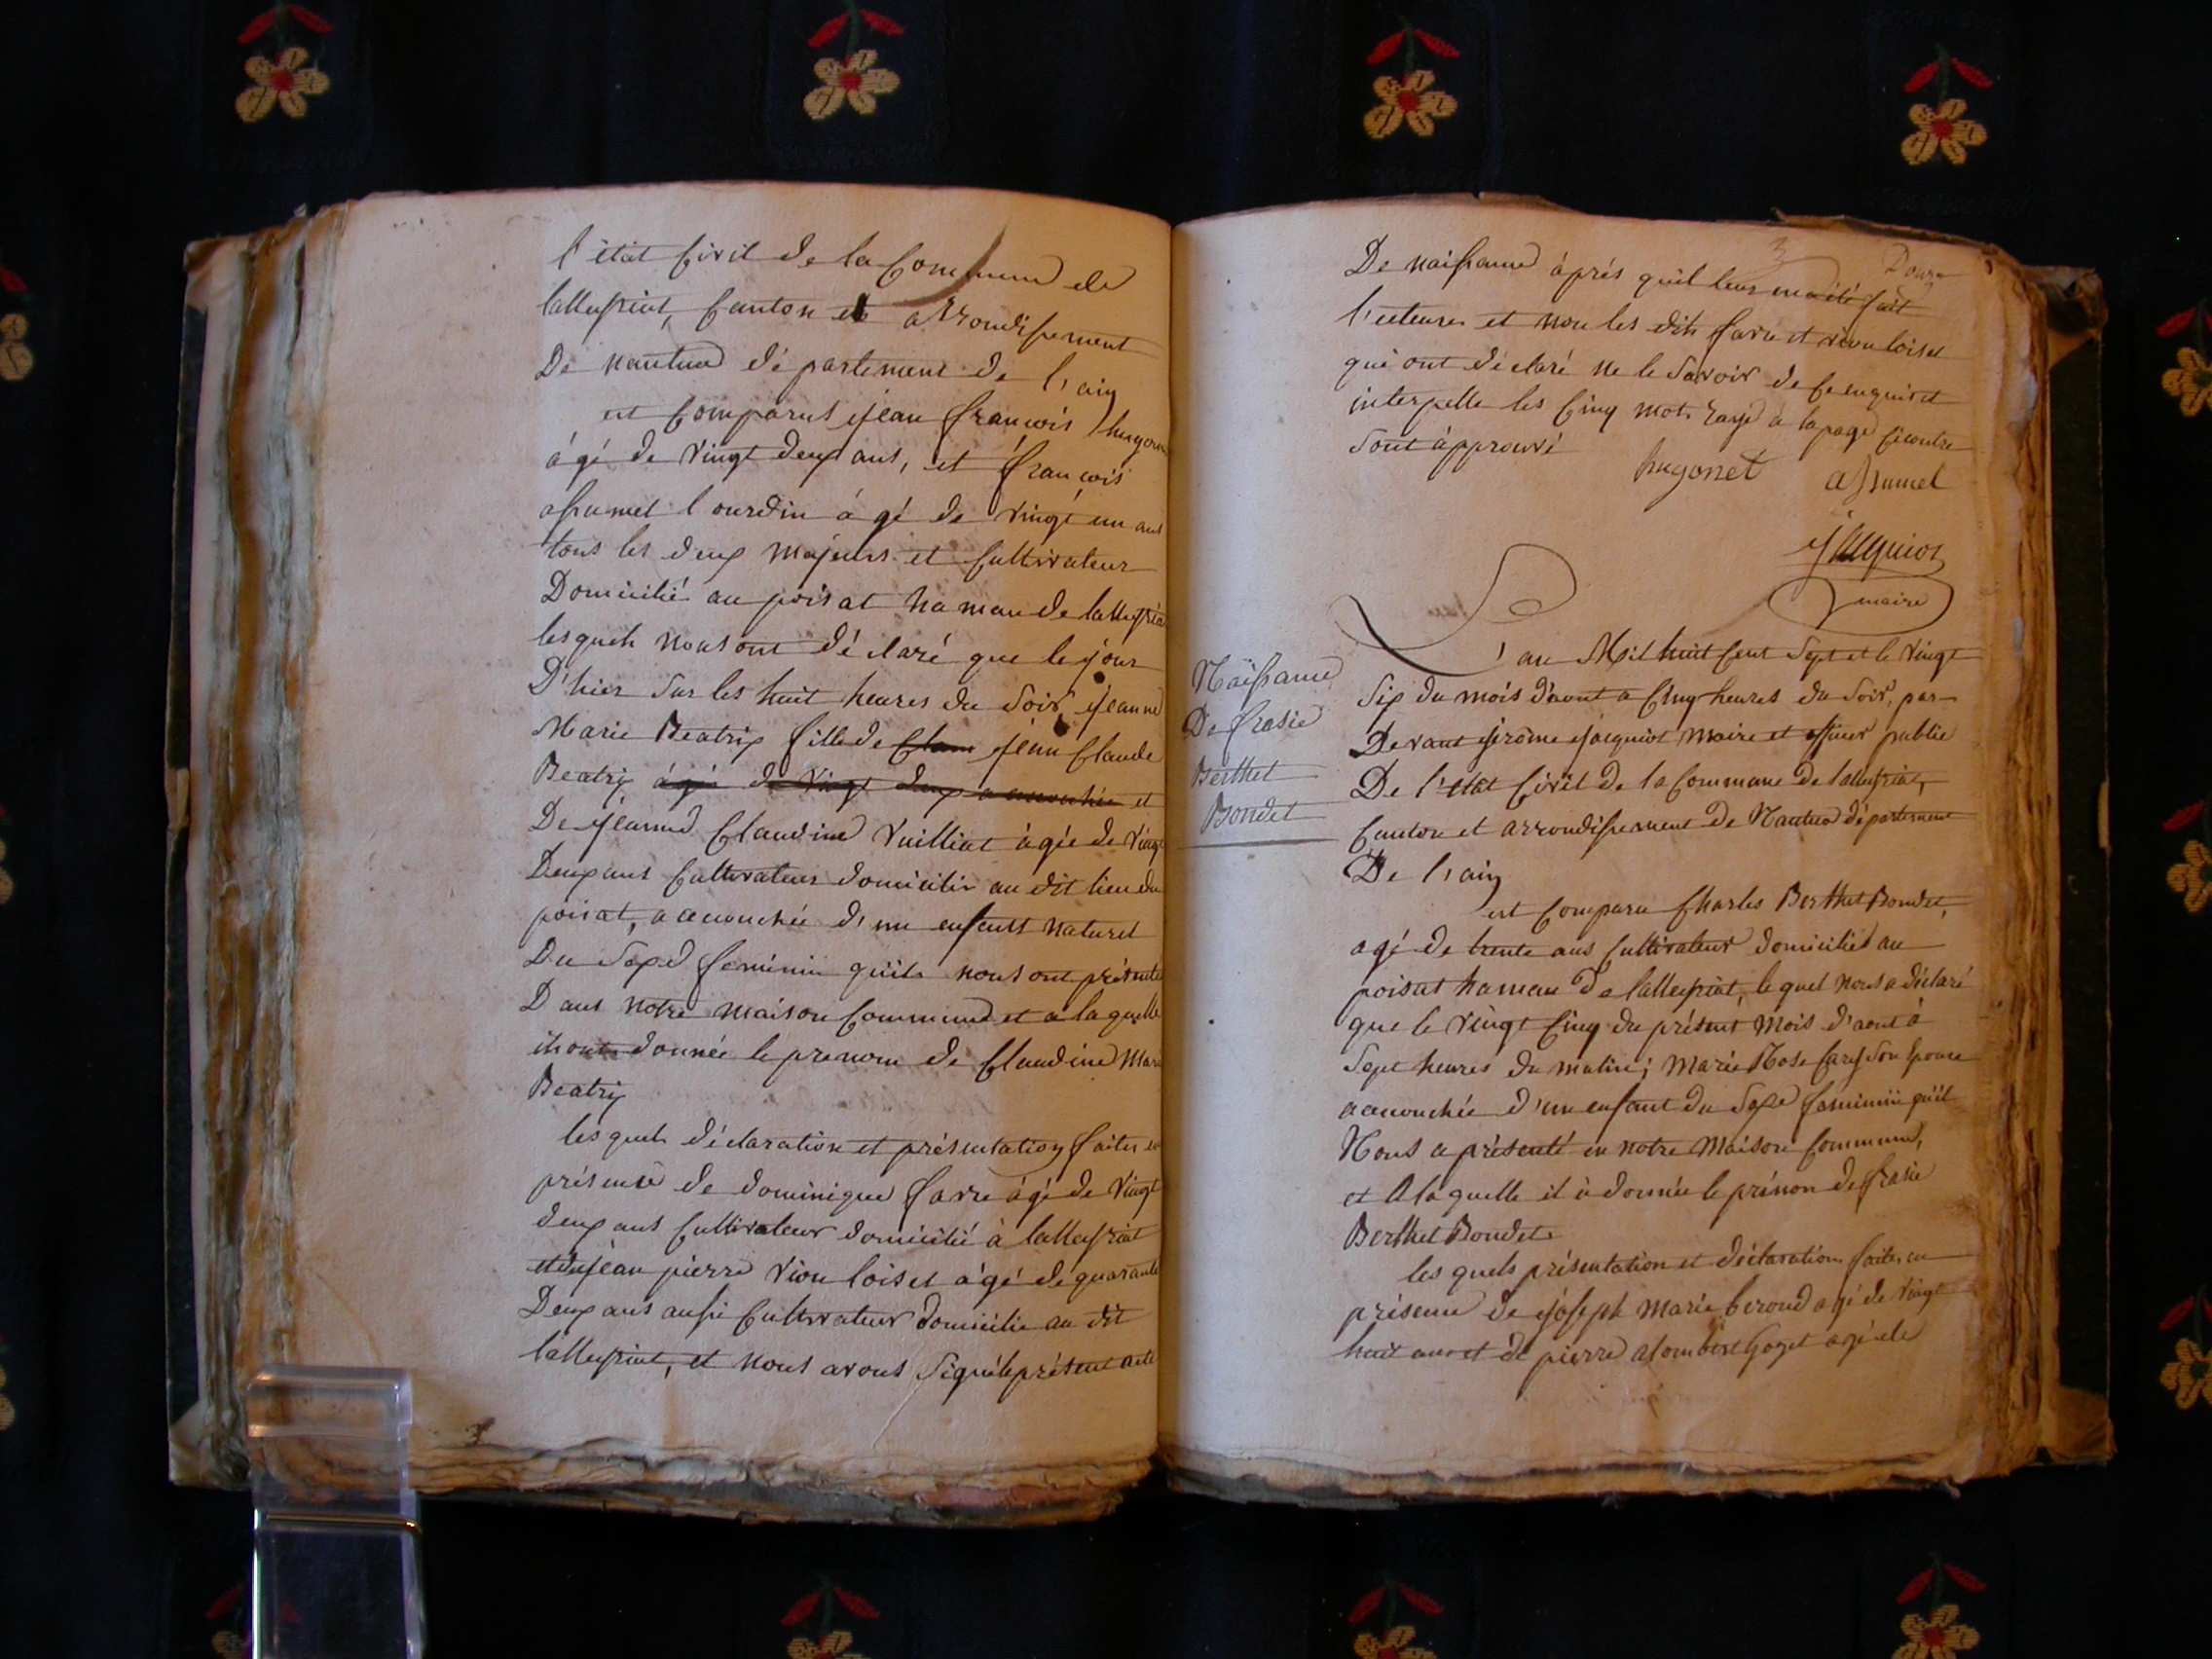 l'état Civil de la Commune de
lalleyriat, Canton et arrondissement
De nantua département de l'ain
est Comparus jean françois hugonet
ágé de vingt deux ans, et françois
assumel lourdin ágé de vingt un ans
tous les deux majeurs et Cultivateur
Domicilié au poisat hamau de lalleyriat
lesquels nous ont déclaré que le jour
D'hier sur les huit heures du soir jeanne
Marie Beatrix fille de Clau jean Claude
Beatrix ágé de vingt deux a accouchée et
De jeanne Claudine Vuilliat ágée de vingt
Deux ans Cultivateur domicilié au dit lieu du
poisat, a accouchée d'un enfant naturel
Du Sexe feminin quils nous ont présenté
Dans notre maison Commune et a laquelle
ils ont donnée le prenom de Claudine Marie
Beatrix
les quels déclaration et présentation faites en
présence de dominique favre ágé de vingt
deux ans Cultivateur domicilié à lalleyriat
et de jean pierre vion loiset ágé de quarante
Deux ans aussi Cultivateur domicilié au dit
lalleyriat, et nous avons Signé le présent acte
Douze
De naissance áprés quil leur en a été fait
l'ecteure et non les dits favre et vion loiset
qui ont déclaré ne le savoir de ce enquis et
interpelle les Cinq mots rayé a la page
sont ápprouvé
hugonet assumel
jacquiot
maire
Naissance
De frasie
Berthet
Bondet
L'an Mil huit Cent Sept et le vingt
Six du mois d'aout a Cinq heures du soir, par-
Devant jerome jacquiot Maire et officier public
De l'état Civil de la Commune de lalleyriat,
Canton et arrondissement de Nantua département
De l'ain
est Comparu Charles Berthet Bondet,
agé de trente ans Cultivateur domicilié au
poisat hamau de lalleyriat, le quel nous a déclaré
que le vingt Cinq du présent mois d'aout á
Sept heures du matin; Marie Rose son épouse
accouchée d'un enfant du Sexe feminin qu'il
Nous a présenté en notre Maison Commune,
et A la quelle il à donnée le prénon de frasie
Berthet Bondet.
les quels présentation et déclaration faites en
présence de joseph Marie berond agé de vingt
huit ans et de pierre alombert goget agé de